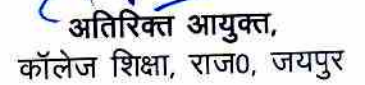 अतिरिक्त आयुक्त,
कॉलेज शिक्षा, राज0, जयपुर